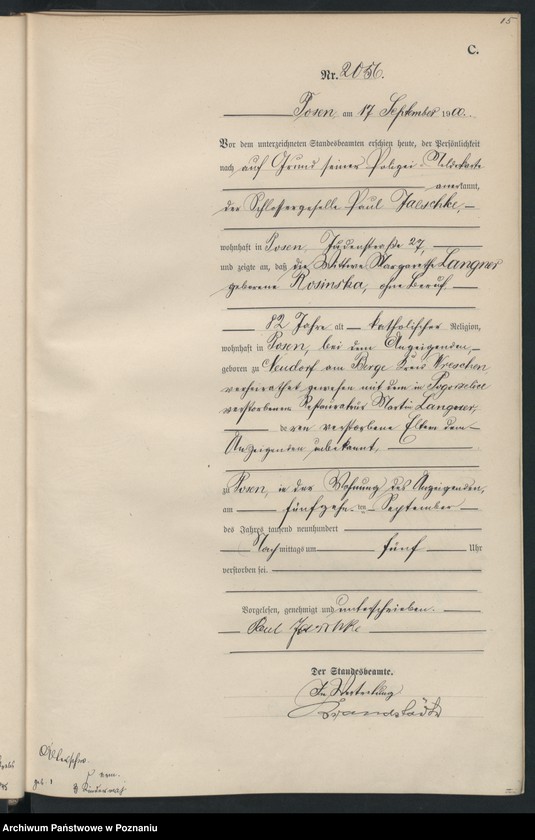 15
C.
Nr. 2056.
Posen, am 17 September 1900.
Vor dem unterzeichneten Standesbeamten erschien heute, der Persönlichkeit
nach auf Grund seiner Polizei-Meldekarte
anerkannt,
der Schlossergeselle Paul Jaeschke,
wohnhaft in Posen, Judenstraße 27,
und zeigte an, daß die Wittwe Margarethe Langner
geborene Rosinska, ohne Beruf
82 Jahre alt katholischer Religion,
wohnhaft in Posen, bei dem Anzeigenden,
geboren zu Neudorf am Berge Kreis Wreschen
verheirathet gewesen mit dem in Pogorzelice
verstorbenen Restaurateur Martin Langner,
deren verstorbene Eltern dem
Anzeigenden unbekannt,
zu Posen, in der Wohnung des Anzeigenden,
am fünfzehn ten September
des Jahres tausend neunhundert
Nach mittags um fünf Uhr
verstorben sei.
Vorgelesen, genehmigt und unterschrieben.
Paul Jaeschke
Der Standesbeamte.
In Vertretung
Archiwum Państwowe w Poznaniu